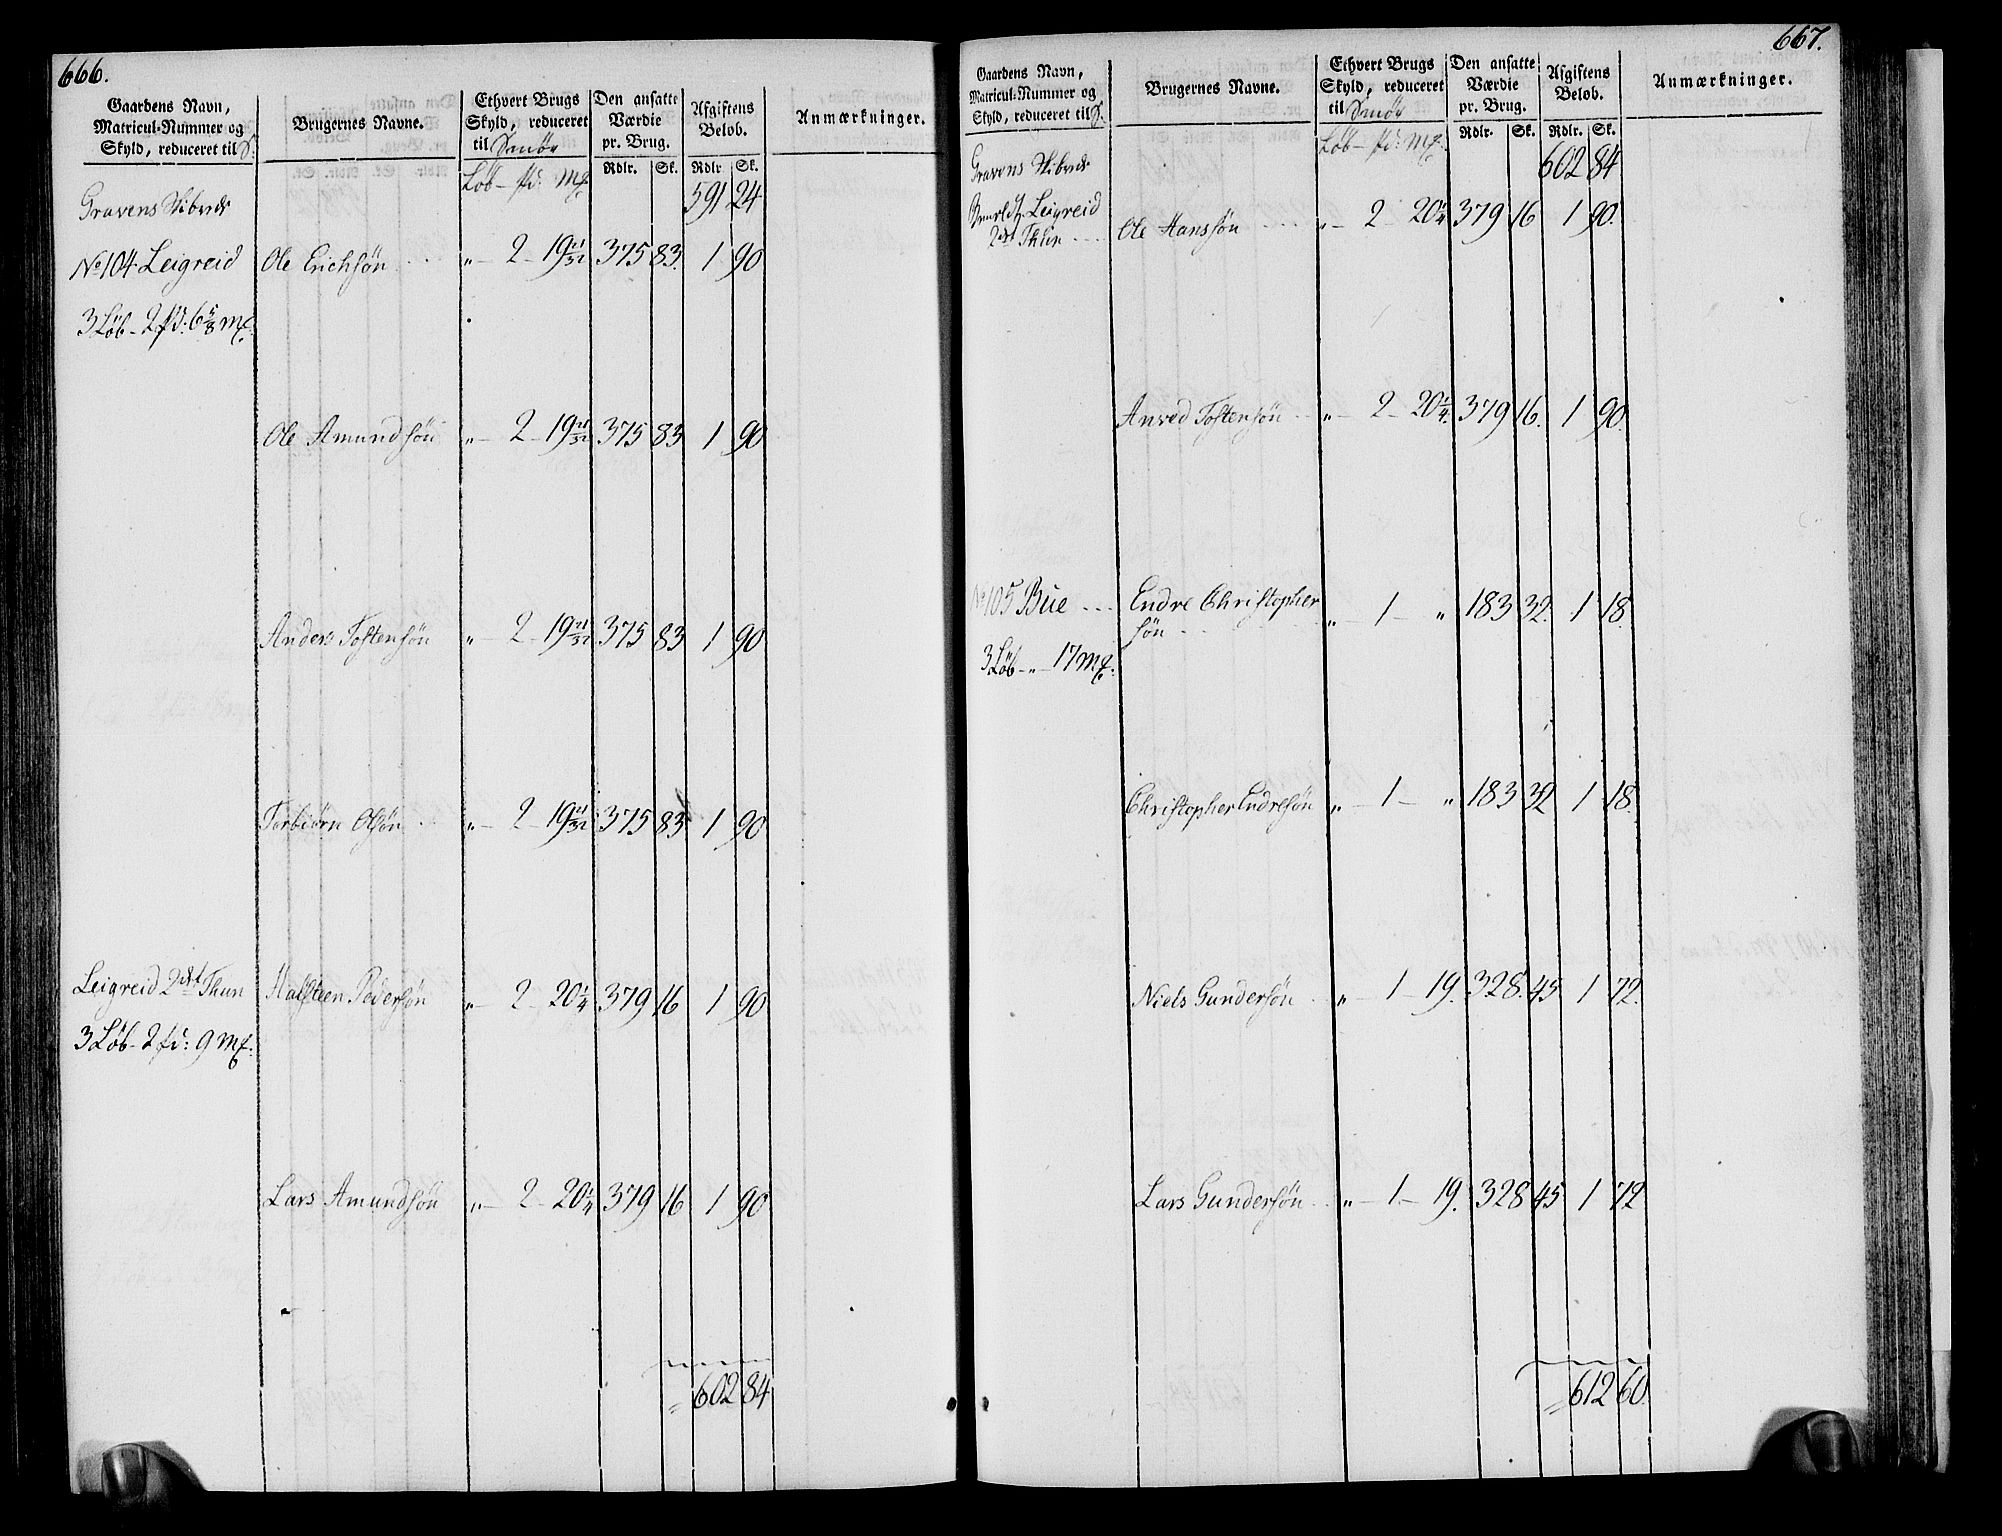 666.
Gaardens Navn,
Matricul-Nummer og
Skyld, reduceret til S.
Brugernes Navne.
Ethvert Brugs
Skyld, reduceret
til Smör
Den ansatte
Værdie
pr. Brug.
Afgiftens
Beløb.
Anmærkninger.
Rdlr. Sk. Rdlr Sk.
Gravens Skibrede
Löb - pd: m&.
591 24
No 104. Leigreid Ole Erichsön „ - 2 - 19 21/32 375 83. 1 90
3 Löb - 2 pd: 6 5/8 m&.
Ole Amundsön „ - 2 - 19 21/32 375 83 1 90
Anders Tostensön „ - 2 - 19 21/32 375 83 1 90
Torbiörn Olsön „ - 2 - 19 21/32 375 83 1 90
Leigreid 2det Thun Halsteen Pedersön „ - 2 - 20 1/4 379 16 1 90
3 Löb - 2 pd: 9 m&.
Lars Amundsön „ - 2 - 20 1/4 379 16 1 90
602 84
667.
Gaardens Navn,
Matricul-Nummer og
Skyld, reduceret til S.
Brugernes Navne.
Ethvert Brugs
Skyld, reduceret
til Smör
Den ansatte
Værdie
pr. Brug.
Afgiftens
Beløb.
Anmærkninger.
Rdlr. Sk. Rdlr. Sk.
Gravens Skibrede
Löb - pd: m&.
602 84
Leigreid
2det Thun Ole Hanssön „ - 2 - 20 1/4 379 16 1 90.
Anved Tostensön „ - 2 - 20 1/4. 379 16. 1 90.
No 105 Büe Endre Christopher
sön „ - 1 - „ 183 32. 1 18.
3 Löb - „ - 17 m&.
Christopher Endresön „ - 1 - „ 183 32 1 18.
Niels Gundersön „ - 1 - 19. 328. 45 1 72.
Lars Gundersön „ - 1 - 19. 328 45 1 72
612 60.